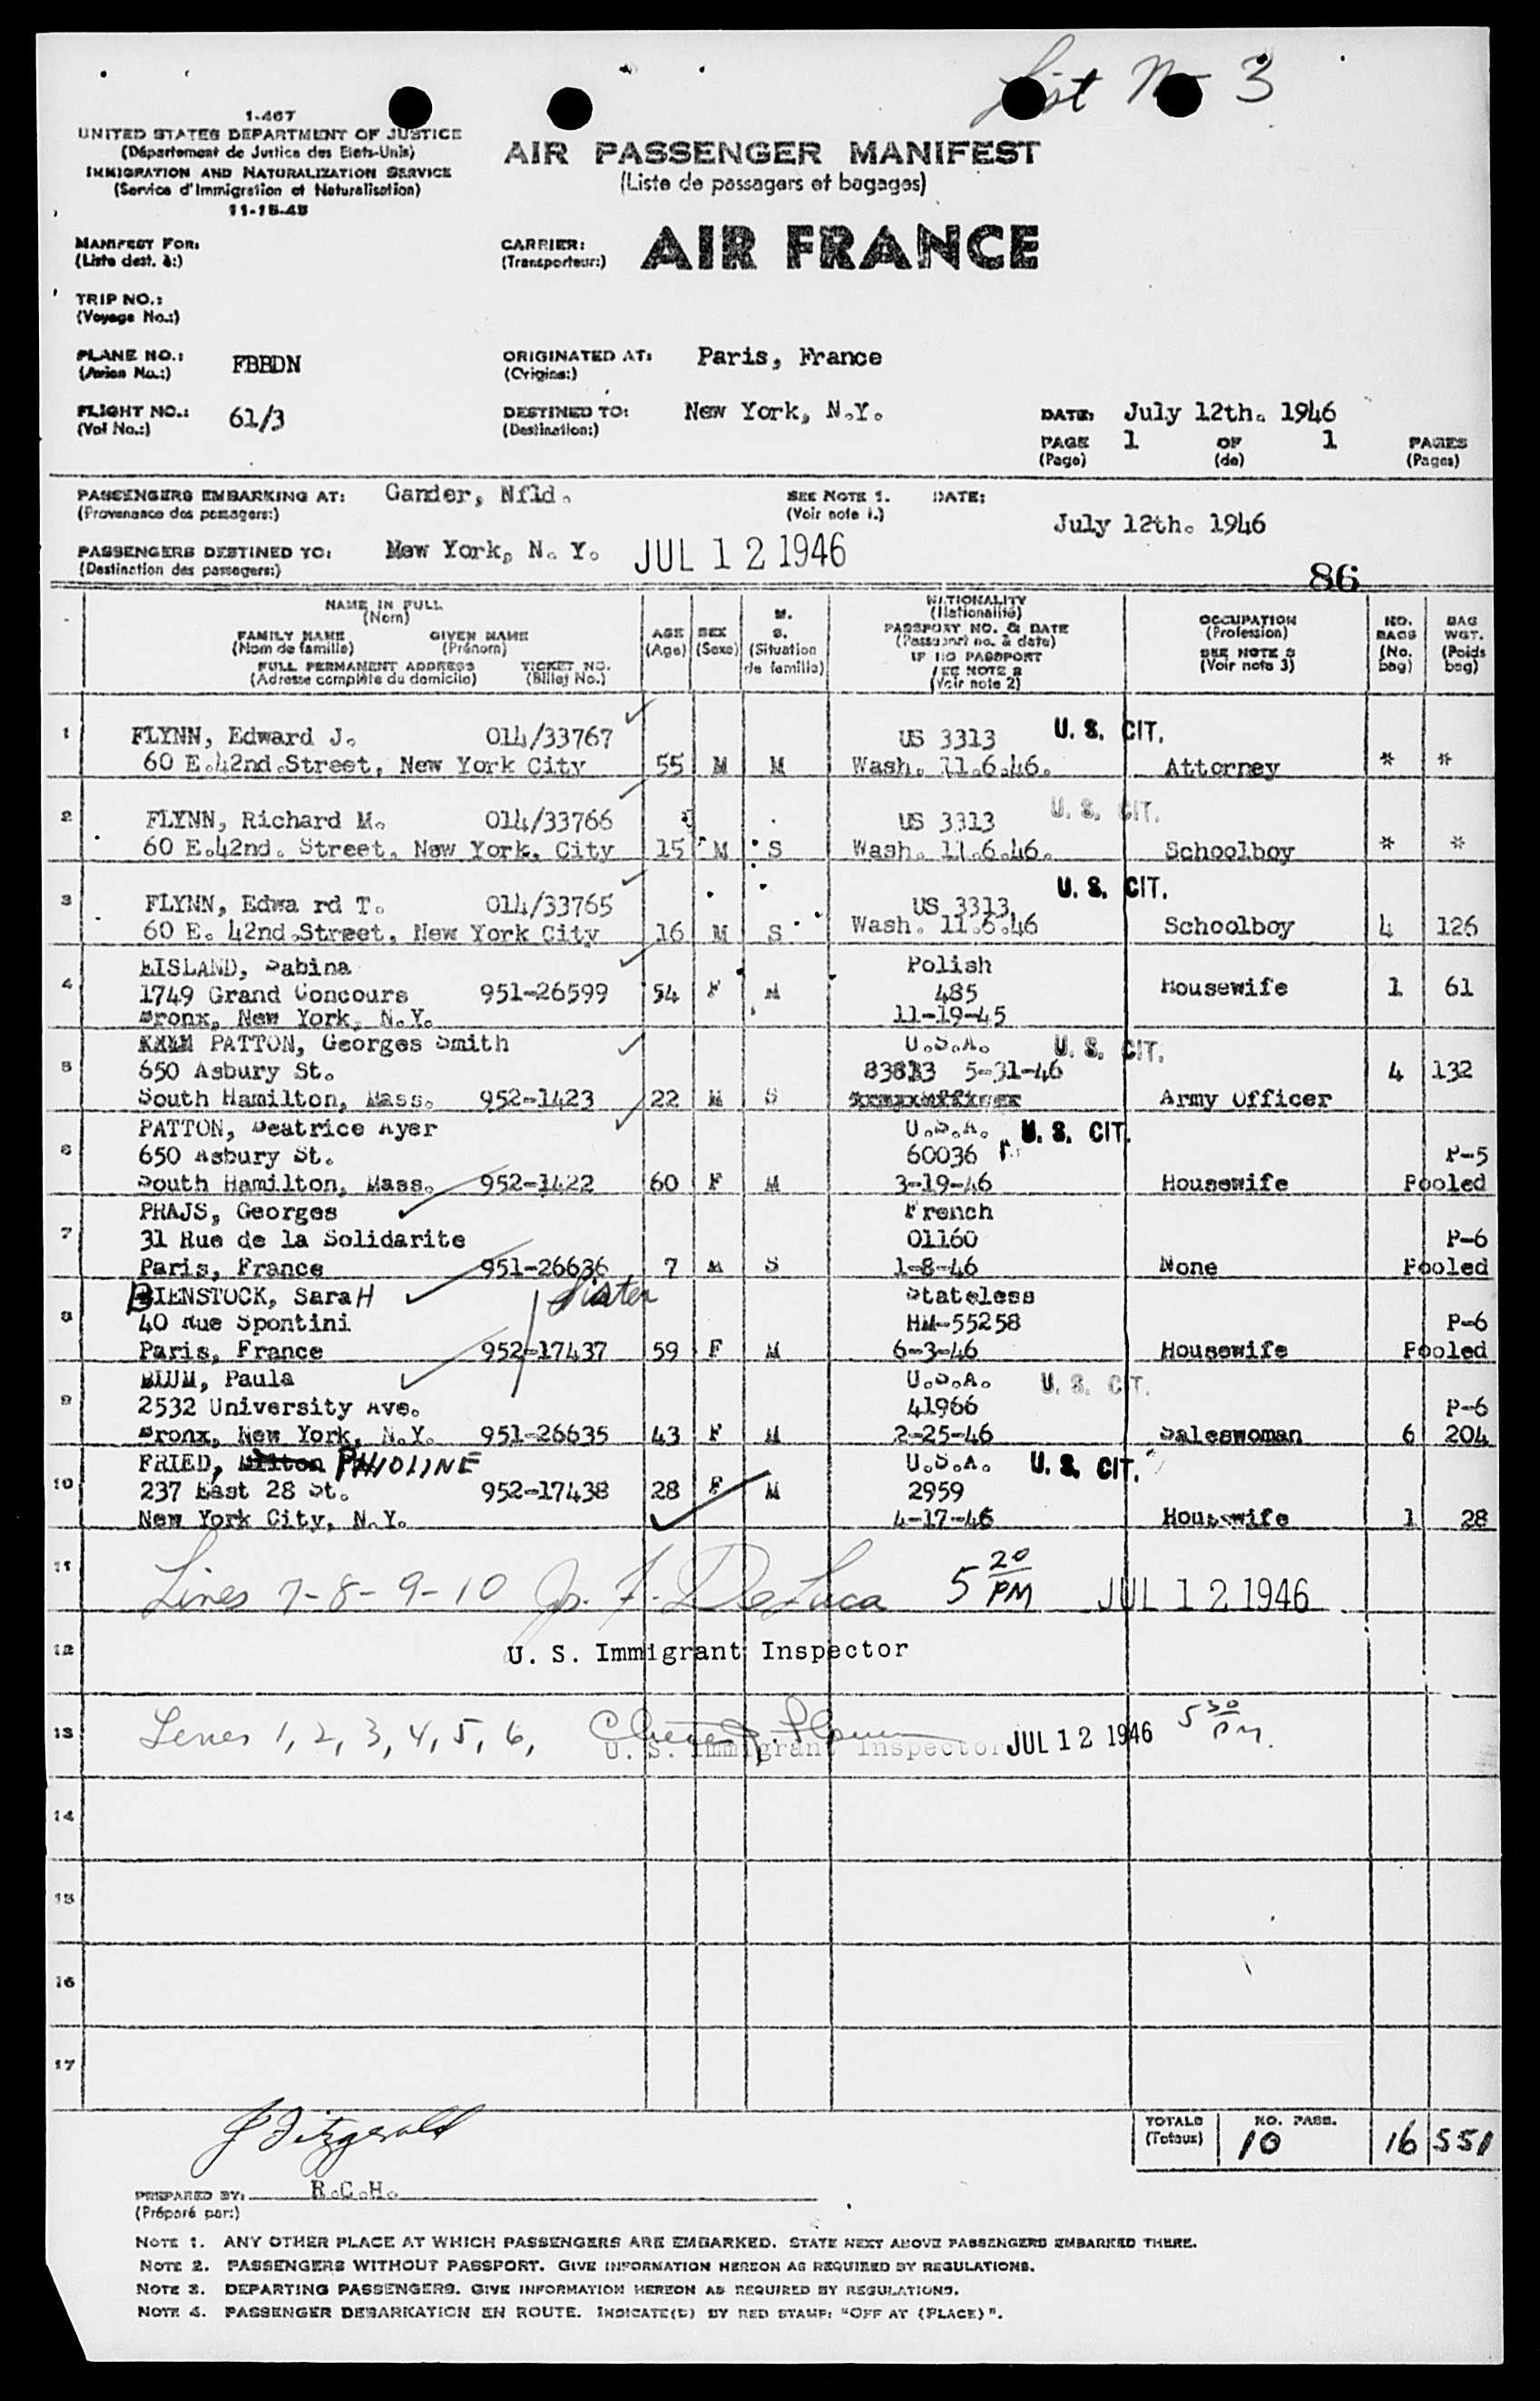 List No 3
1-467
UNITED STATES DEPARTMENT OF JUSTICE
(Département de Justice des Etats-Unis)
IMMIGRATION AND NATURALIZATION SERVICE
(Service d'Immigration et Naturalisation)
11-15-45
AIR PASSENGER MANIFEST
(Liste de passagers et bagages)
MANIFEST FOR:
(Liste dest. à:)
CARRIER: AIR FRANCE
(Transporteur:)
TRIP NO.:
(Voyage No.:)
PLANE NO.: FBBDN
(Avion No.:)
ORIGINATED AT: Paris, France
(Origine:)
FLIGHT NO.: 61/3
(Vol No.:)
DESTINED TO: New York, N.Y.
(Destination:)
DATE: July 12th. 1946
PAGE 1 OF 1 PAGES
(Page) (de) (Pages)
PASSENGERS EMBARKING AT: Gander, Nfld.
(Provenance des passagers:)
SEE NOTE 1. DATE:
(Voir note 1.)
July 12th. 1946
PASSENGERS DESTINED TO: New York, N. Y. JUL 12 1946
(Destination des passagers:)
86
NAME IN FULL
(Nom)
FAMILY NAME GIVEN NAME
(Nom de famille) (Prénom)
FULL PERMANENT ADDRESS TICKET NO.
(Adresse complète du domicile) (Billet No.)
AGE
(Age)
SEX
(Sexe)
M.
S.
(Situation
de famille)
NATIONALITY
(Nationalité)
PASSPORT NO. & DATE
(Passeport no. & date)
IF NO PASSPORT
SEE NOTE 2
(Voir note 2)
OCCUPATION
(Profession)
SEE NOTE 3
(Voir note 3)
NO.
BAGS
(No.
bag)
BAG
WGT.
(Poids
bag)
1 FLYNN, Edward J. 014/33767 US 3313 U. S. CIT.
60 E.42nd.Street, New York City 55 M M Wash. 11.6.46. Attorney * *
2 FLYNN, Richard M. 014/33766 US 3313 U. S. CIT.
60 E.42nd. Street, New York, City 15 M S Wash. 11.6.46. Schoolboy * *
3 FLYNN, Edwa rd T. 014/33765 US 3313 U. S. CIT.
60 E. 42nd.Street, New York City 16 M S Wash. 11.6.46 Schoolboy 4 126
EISLAND, Sabina Polish
4 1749 Grand Concours 951-26599 54 F M 485 Housewife 1 61
Bronx, New York, N.Y. 11-19-45
PATTON, Georges Smith U.S.A. U. S. CIT.
5 650 Asbury St. 83813 5-31-46 4 132
South Hamilton, Mass. 952-1423 22 M S Army Officer
PATTON, Beatrice Ayer U.S.A. U. S. CIT.
6 650 Asbury St. 60036 P-5
South Hamilton, Mass. 952-1422 60 F M 3-19-46 Housewife Pooled
PHAJS, Georges French
7 31 Rue de la Solidarite 01160 P-6
Paris, France 951-26636 7 M S 1-8-46 None Pooled
BIENSTOCK, SaraH Sister Stateless
8 40 Rue Spontini HM-55258 P-6
Paris, France 952-17437 59 F M 6-3-46 Housewife Pooled
BLUM, Paula U.S.A. U. S. CIT.
9 2532 University Ave. 41966 P-6
Bronx, New York, N.Y. 951-26635 43 F M 2-25-46 Saleswoman 6 204
FRIED, PHIOLINE U.S.A. U. S. CIT.
10 237 East 28 St. 952-17438 28 F M 2959
New York City, N.Y. 4-17-46 Housewife 1 28
11 Lines 7-8-9-10 Jos. F. DeLuca 5 20 PM JUL 12 1946
12 U. S. Immigrant Inspector
13 Lines 1, 2, 3, 4, 5, 6, JUL 12 1946 5 30 PM.
U. S. Immigrant Inspector
14
15
16
17
J Fitzgerald
TOTALS NO. PASS.
(Totaux) 10 16 551
PREPARED BY: R.C.H.
(Préparé par:)
NOTE 1. ANY OTHER PLACE AT WHICH PASSENGERS ARE EMBARKED. STATE NEXT ABOVE PASSENGERS EMBARKED THERE.
NOTE 2. PASSENGERS WITHOUT PASSPORT. GIVE INFORMATION HEREON AS REQUIRED BY REGULATIONS.
NOTE 3. DEPARTING PASSENGERS. GIVE INFORMATION HEREON AS REQUIRED BY REGULATIONS.
NOTE 4. PASSENGER DEBARKATION EN ROUTE. INDICATE(D) BY RED STAMP: "OFF AT (PLACE)".